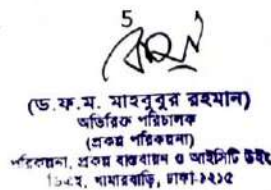 5
(ড.ফ.ম. মাহবুবুর রহমান)
অতিরিক্ত পরিচালক
(প্রকল্প পরিকল্পনা)
পরিকল্পনা, প্রকল্প বাস্তবায়ন ও আইসিটি উইং
ডিএই, খামারবাড়ি, ঢাকা-১২১৫